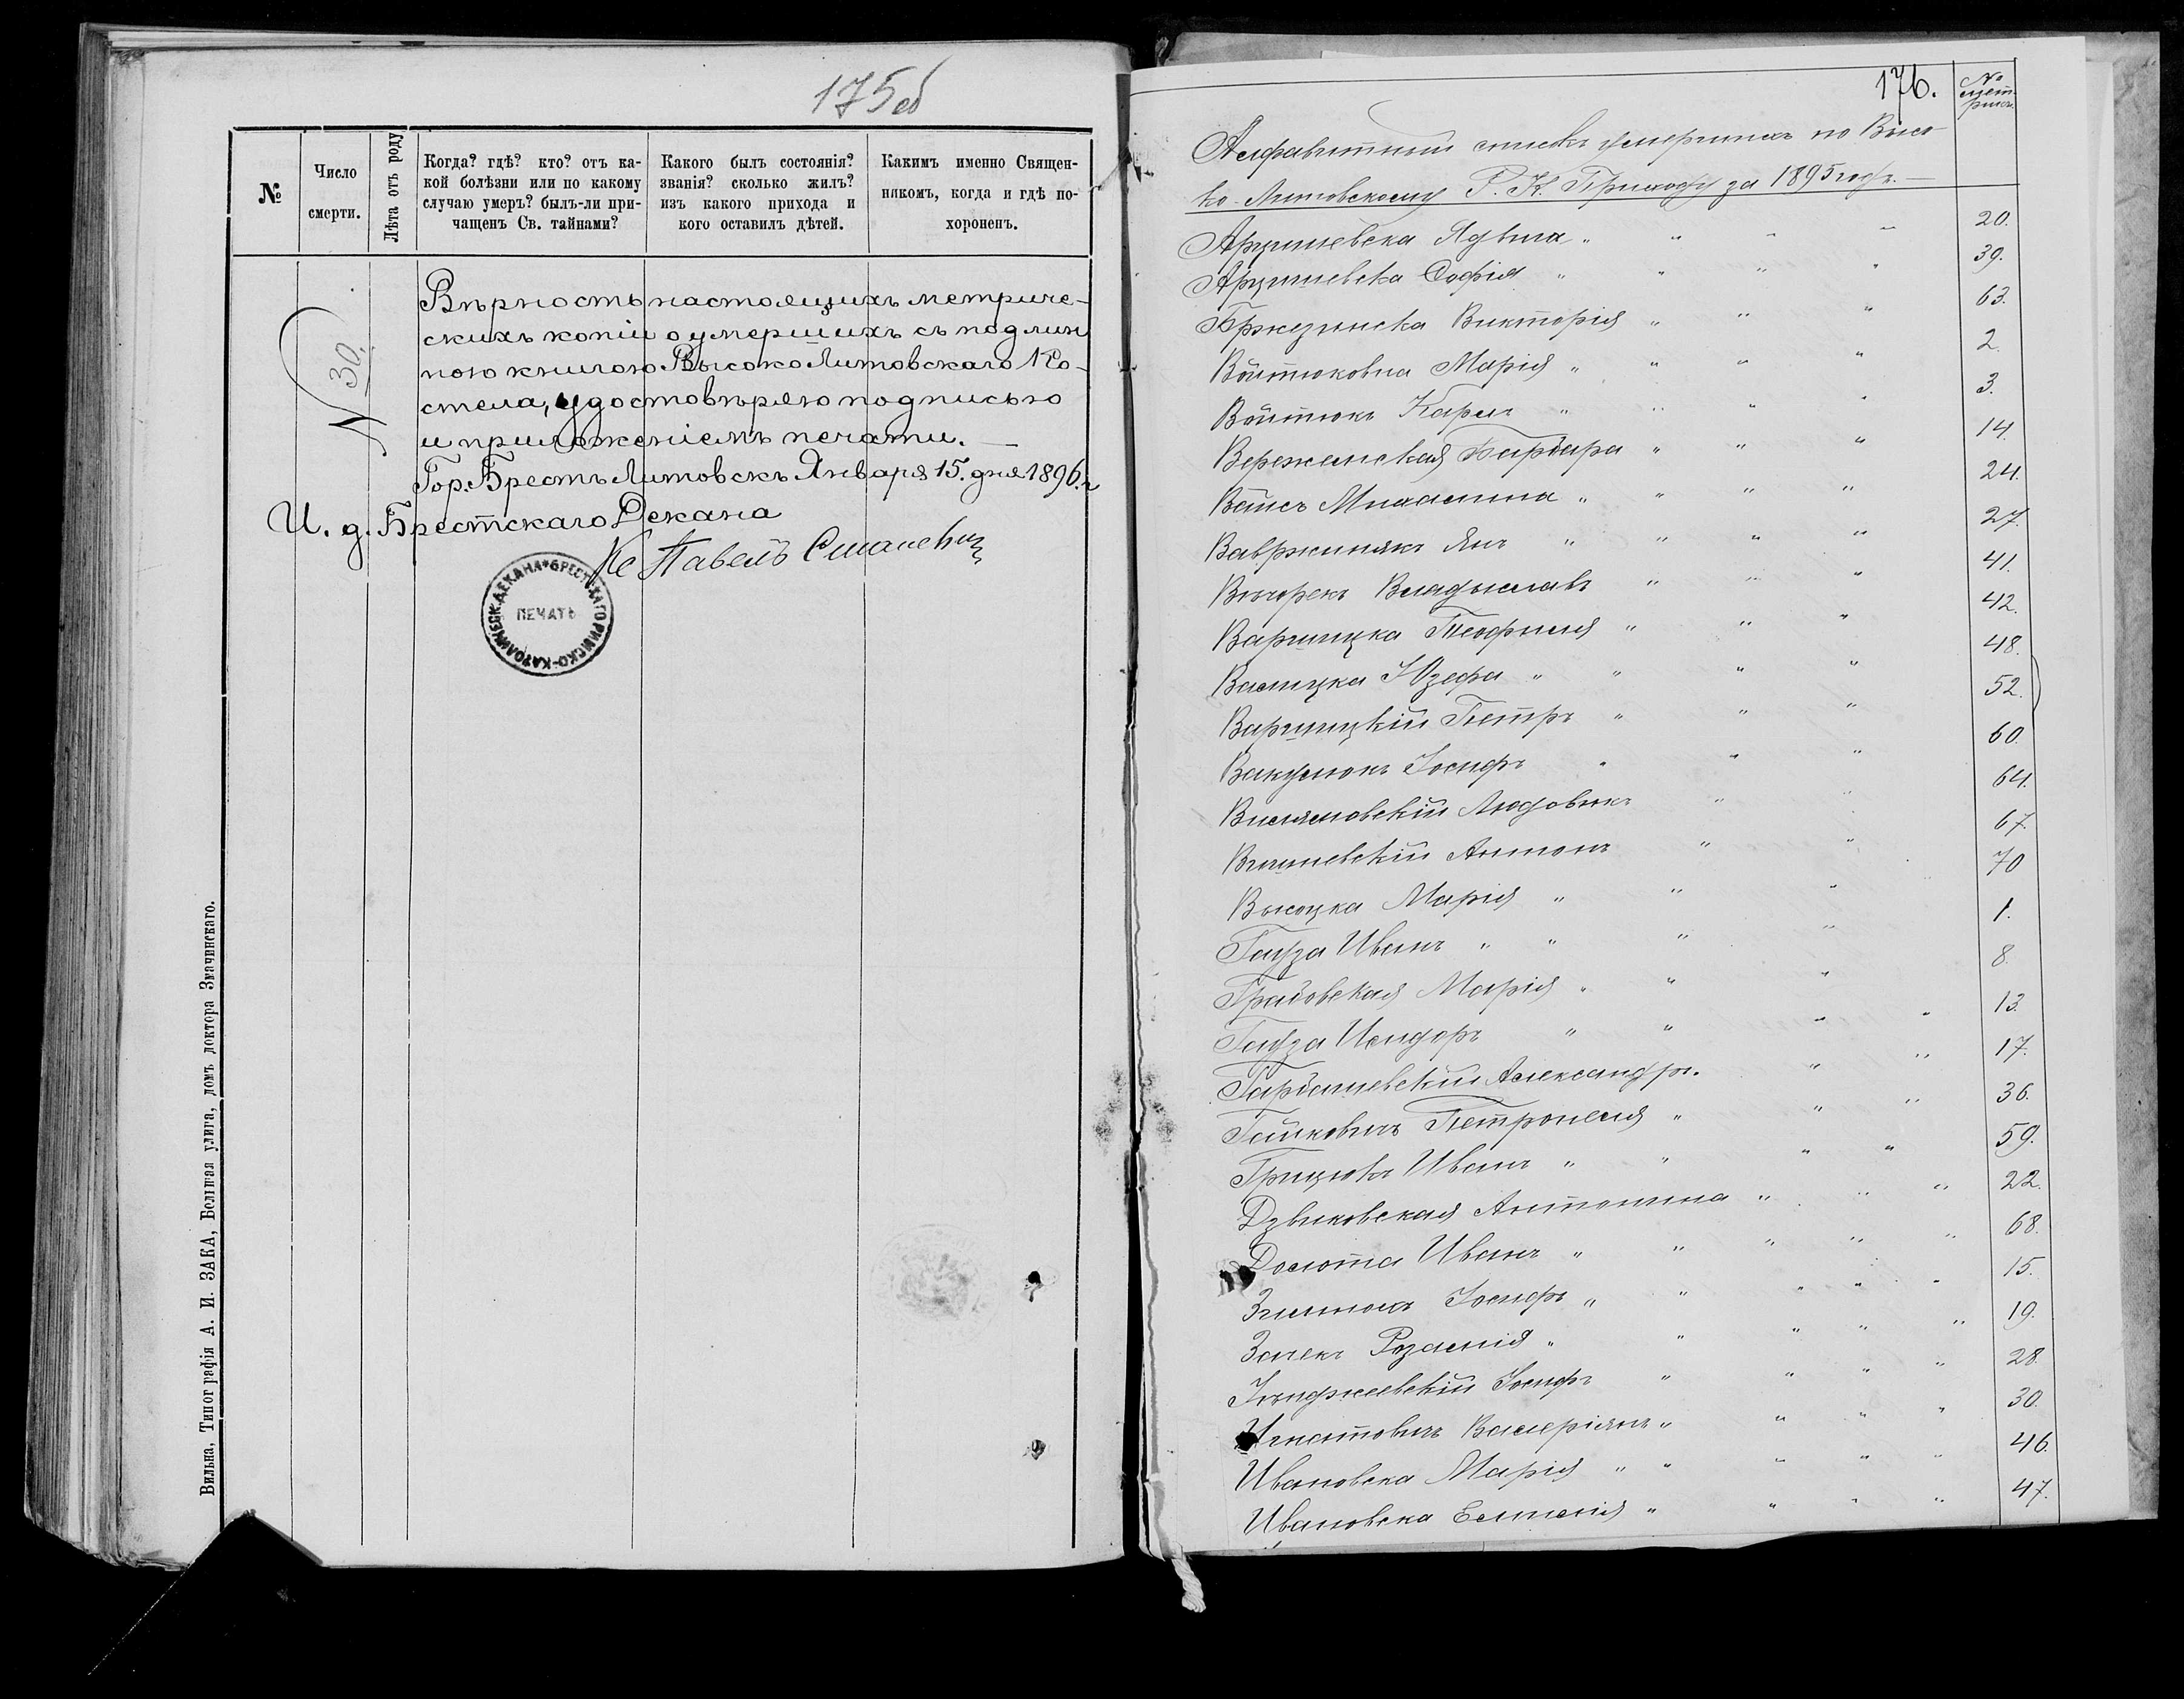 175об
№
Число смерти.
Лѣта отъ роду
Когда? гдѣ? кто? отъ ка-
кой болѣзни или по какому
случаю умеръ? былъ-ли при-
чащенъ Св. тайнами?
Какого былъ состоянія?
званія? сколько жилъ?
изъ какого прихода и
кого оставилъ дѣтей.
Какимъ именно Священ-
никомъ, когда и гдѣ по-
хороненъ.
N 30.
Вѣрность настоящихъ метриче-
скихъ копій о умершихъ съ подлин
ною книгою Высоко Литовскаго Ко-
стела, удостовѣряю подписью
и приложеніемъ печати.
Гор. Брестъ Литовскъ Января 15. дня 1896. г
И. д. Брестскаго Декана
Кс Павелъ
ДЕКАНА БРЕСТСКАГО РИМСКО-КАТОЛИЧЕСК.
ПЕЧАТЬ
Вильна, Типографія А. И. ЗАКА, Большая улица, домъ доктора Змачинскаго.
176.
№ метрич.
Алфавитный списокъ умершихъ по Высо-
ко-Литовскому Р. К. Приходу за 1895 годъ.
Арцишевска Ядвига " " " " 20.
Арцишевска Софія " " " " 39.
Бржезинска Викторія " " " 63.
Войтюковна Марія " " " " 2.
Войтюкъ Карлъ " " " " 3.
Вережинская Барбара " " " 14.
Вайсъ Михалина " " " " 24.
Вавржинякъ Янъ " " " " 27.
Вѣчорекъ Владыславъ " " " 41.
Варшицка Теофилия " " " 42.
Валицка Юзефа " " " " 48.
Варшицкій Петръ " " " 52.
Вакулюкъ Іосифъ " " " 60.
Вилямовскій Людовикъ " " 64.
Вишневскій Антонъ " " 67.
Высоцка Марія " " " 70
Гауза Иванъ " " " " 1.
Грабовская Марія " " " 8.
Гауза Исидоръ " " " " 13.
Гарбашевскій Александръ. " " 17.
Гайковичъ Петронеля " " " 36.
Грицюкъ Иванъ " " " " 59.
Дзвиковская Антонина " " " 22.
Долота Иванъ " " " " " 68.
Іосифъ " " " " " 15.
Розалія " " " " " 19.
Іосифъ " " " " 28.
Игнатовичъ Валеріянъ " " " " 30.
Ивановска Марія " " " " " 46.
Ивановска " " " " 47.